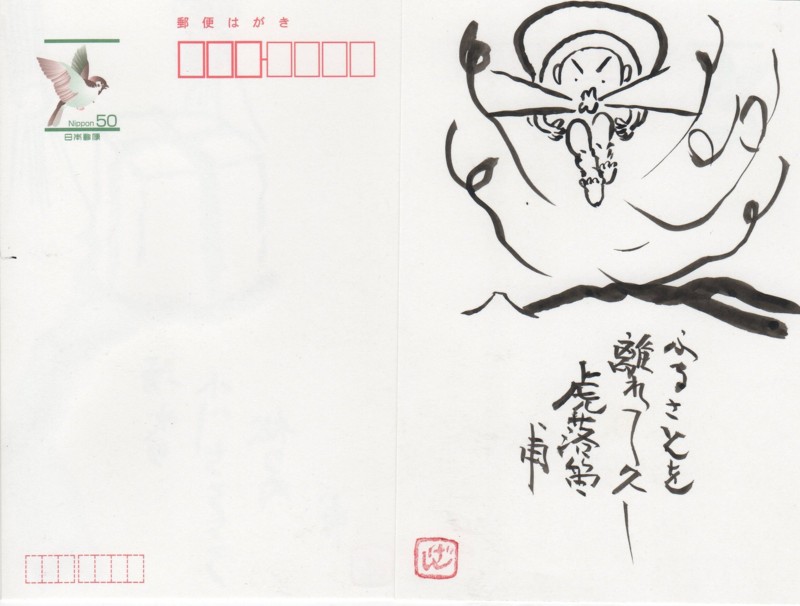 郵便はがき
Nippon 50
日本郵便
ふるさとを
離れて久し
虎落笛
甫